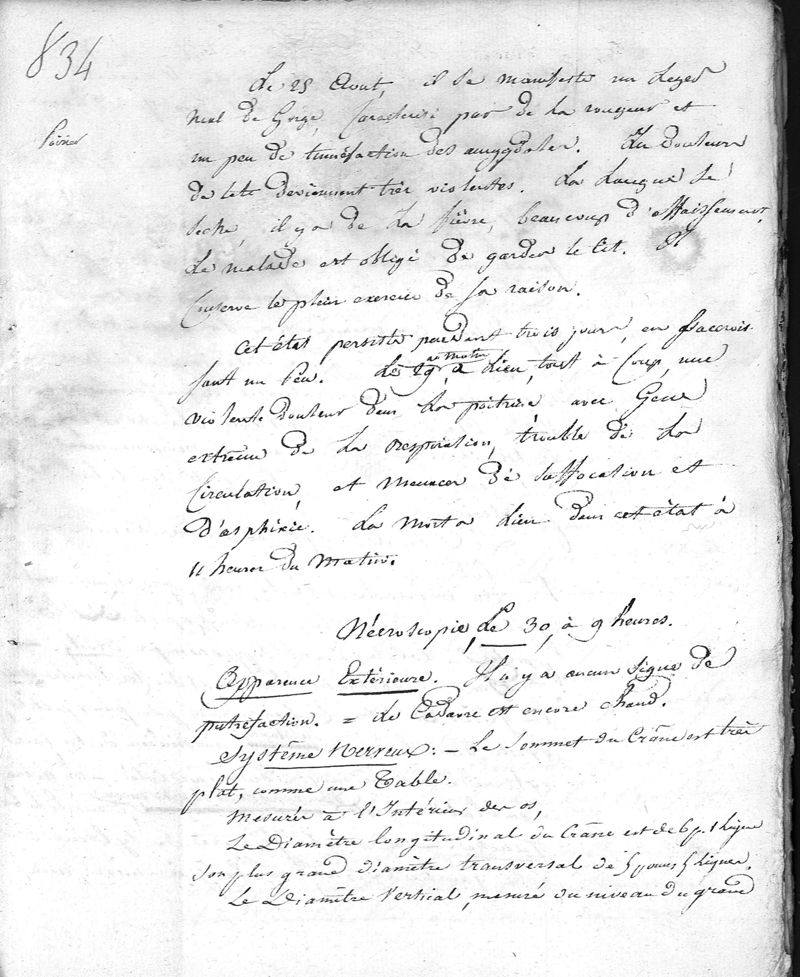 834
Le 25 Aout, il se manifeste un leger
mal de Gorge, Caracterisé par de la rougeur et
un peu de tuméfaction des amygdales. Les douleurs
de tete deviennent très violentes. La Langue se
seche, il y a de la fièvre, beaucoup d'affaissement.
Le malade est obligé de garder le Lit. Il
Conserve le plein exercice de sa raison.
Cet état persiste pendant trois jours, en s'accrois
sant un peu. Le 29, au matin, a Lieu, tout à Coup, une
violente douleur dans la poitrine avec Gene
extrême de la respiration, trouble de la
Circulation, et menaces de suffocation et
D'asphixie. La mort a Lieu dans cet état à
11 heures du Matin.
Nécroscopie, Le 30, à 9 heures.
Apparence Extérieure. Il n'y a aucun signe de
putrefaction. = Le Cadavre est encore Chaud.
Système Nerveux: - Le Sommet du Crâne est très
plat, comme une Table.
Mesurés à l'Intérieur des os,
Le Diamètre longitudinal du Crâne est de 6 p. 1 Ligne
Son plus grand diamètre transversal de 5 pouces 5 Lignes.
Le Diamètre Vertical, mesuré au niveau du grand